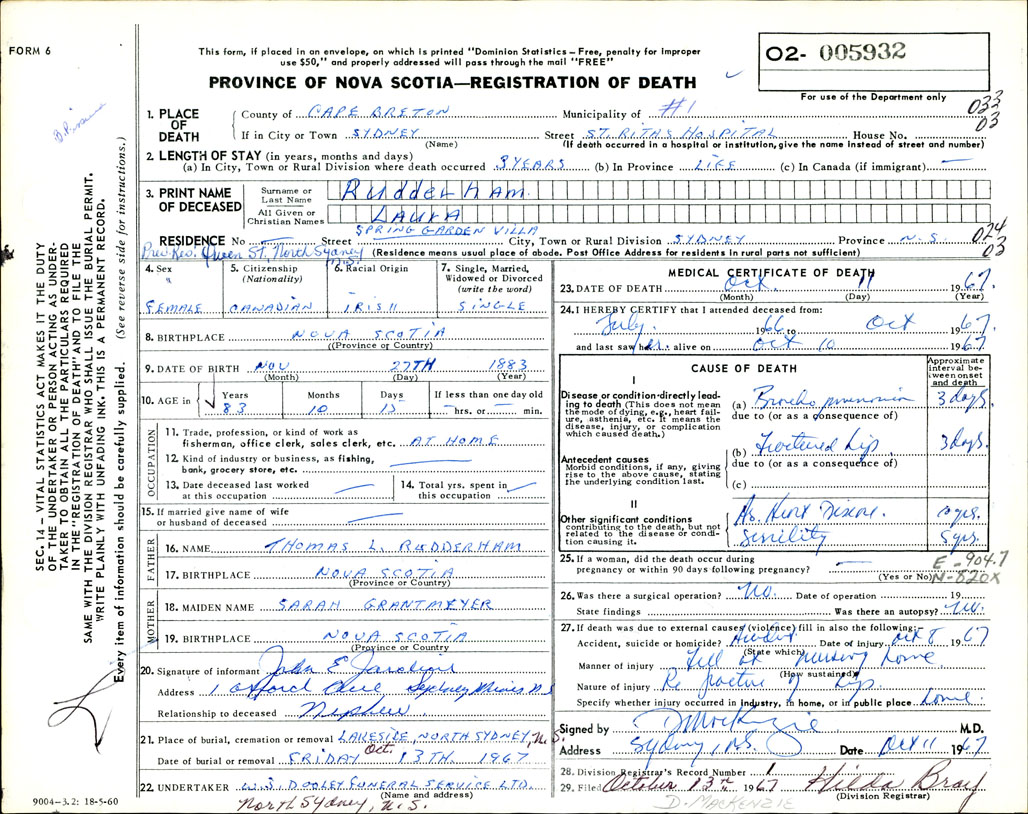 FORM 6
This form, if placed in an envelope, on which is printed "Dominion Statistics – Free, penalty for improper
use $50," and properly addressed will pass through the mail "FREE"
PROVINCE OF NOVA SCOTIA—REGISTRATION OF DEATH
02- 005932
For use of the Department only
033
03
1. PLACE OF DEATH
County of CAPE BRETON Municipality of #1
If in City or Town SYDNEY Street ST. RITAS HOSPITAL House No.
(Name) (If death occurred in a hospital or institution, give the name instead of street and number)
2. LENGTH OF STAY (in years, months and days)
(a) In City, Town or Rural Division where death occurred 3 YEARS (b) In Province LIFE (c) In Canada (if immigrant) —
3. PRINT NAME OF DECEASED
Surname or Last Name Rudderham
All Given or Christian Names LAURA
SPRING GARDEN VILLA
RESIDENCE No — Street City, Town or Rural Division SYDNEY Province N.S.
024
03
Prev. Res. Queen St. North Sydney N.S. (Residence means usual place of abode. Post Office Address for residents in rural parts not sufficient)
4. Sex
FEMALE
5. Citizenship (Nationality)
CANADIAN
6. Racial Origin
IRISH
7. Single, Married, Widowed or Divorced (write the word)
SINGLE
8. BIRTHPLACE NOVA SCOTIA
(Province or Country)
9. DATE OF BIRTH NOV 27TH 1883
(Month) (Day) (Year)
10. AGE in Years Months Days If less than one day old
83 10 15 — hrs. or — min.
OCCUPATION
11. Trade, profession, or kind of work as
fisherman, office clerk, sales clerk, etc. AT HOME
12. Kind of industry or business, as fishing,
bank, grocery store, etc. —
13. Date deceased last worked
at this occupation —
14. Total yrs. spent in
this occupation —
15. If married give name of wife
or husband of deceased —
FATHER
16. NAME THOMAS L. RUDDERHAM
17. BIRTHPLACE NOVA SCOTIA
(Province or Country)
MOTHER
18. MAIDEN NAME SARAH GRANTMEYER
19. BIRTHPLACE NOVA SCOTIA
(Province or Country)
20. Signature of informant John E Jardine
Address 1 Oxford Ave Sydney Mines N.S
Relationship to deceased Nephew
21. Place of burial, cremation or removal LAKESIDE, NORTH SYDNEY, N.S.
Date of burial or removal FRIDAY Oct. 13TH. 1967
22. UNDERTAKER W.J. DOOLEY FUNERAL SERVICE LTD.
(Name and address)
North Sydney, N.S.
9004-3.2: 18-5-60
MEDICAL CERTIFICATE OF DEATH
23. DATE OF DEATH Oct. 11 1967.
(Month) (Day) (Year)
24. I HEREBY CERTIFY that I attended deceased from:
July 1966 to Oct 1967.
and last saw her alive on Oct 10 1967
CAUSE OF DEATH
Approximate interval between onset and death
I
Disease or condition directly leading to death (This does not mean the mode of dying, e.g., heart failure, asthenia, etc. It means the disease, injury, or complication which caused death.)
(a) Broncho pneumonia 3 days.
due to (or as a consequence of)
(b) Fractured hip 3 days.
Antecedent causes
Morbid conditions, if any, giving rise to the above cause, stating the underlying condition last.
due to (or as a consequence of)
(c)
II
Other significant conditions
contributing to the death, but not related to the disease or condition causing it.
As. Heart Disease. yrs.
Senility 5 yrs.
25. If a woman, did the death occur during
pregnancy or within 90 days following pregnancy? —
(Yes or No)
E-904.7
N-820X
26. Was there a surgical operation? No. Date of operation 19
State findings Was there an autopsy? No.
27. If death was due to external causes (violence) fill in also the following:
Accident, suicide or homicide? Accident Date of injury Oct 8 1967
(State which)
Manner of injury Fell at nursing home.
(How sustained)
Nature of injury Rt fracture of hip.
Specify whether injury occurred in industry, in home, or in public place home.
Signed by D MacKenzie M.D.
Address Sydney, N.S. Date Oct 11 1967
28. Division Registrar's Record Number
29. Filed October 13th 1967 Hilda Bray
(Division Registrar)
D. MACKENZIE
SEC. 14 – VITAL STATISTICS ACT MAKES IT THE DUTY
OF THE UNDERTAKER OR PERSON ACTING AS UNDER-
TAKER TO OBTAIN ALL THE PARTICULARS REQUIRED
IN THE "REGISTRATION OF DEATH" AND TO FILE THE
SAME WITH THE DIVISION REGISTRAR WHO SHALL ISSUE THE BURIAL PERMIT.
WRITE PLAINLY WITH UNFADING INK. THIS IS A PERMANENT RECORD.
Every item of information should be carefully supplied. (See reverse side for instructions.)